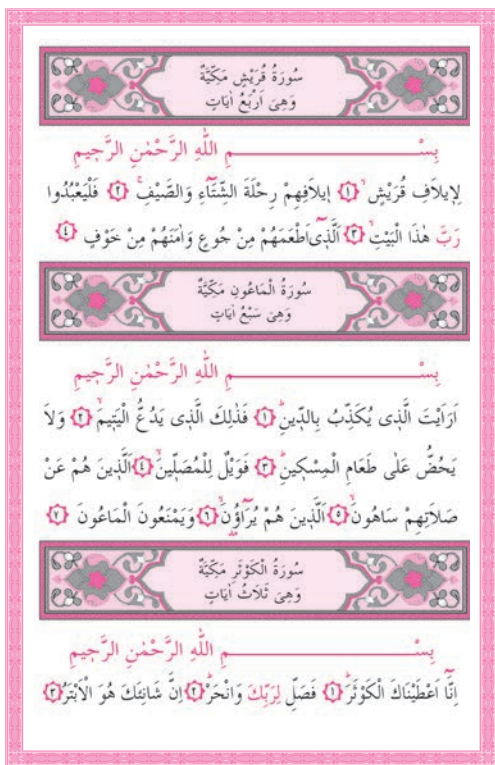 سُورَةُ قُرَيْشٍ مَكِّيَّةٌ
وَهِيَ اَرْبَعُ اٰيَاتٍ
بِسْــــــــــــــــــمِ اللّٰهِ الرَّحْمٰنِ الرَّحِيمِ
لِاِيلَافِ قُرَيْشٍۙ ﴿١﴾ اِيلَافِهِمْ رِحْلَةَ الشِّتَٓاءِ وَالصَّيْفِۚ ﴿٢﴾ فَلْيَعْبُدُوا
رَبَّ هٰذَا الْبَيْتِۙ ﴿٣﴾ اَلَّذ۪ٓي اَطْعَمَهُمْ مِنْ جُوعٍ وَاٰمَنَهُمْ مِنْ خَوْفٍ ﴿٤﴾
سُورَةُ الْمَاعُونِ مَكِّيَّةٌ
وَهِيَ سَبْعُ اٰيَاتٍ
بِسْــــــــــــــــــمِ اللّٰهِ الرَّحْمٰنِ الرَّحِيمِ
اَرَاَيْتَ الَّذ۪ي يُكَذِّبُ بِالدّ۪ينِۜ ﴿١﴾ فَذٰلِكَ الَّذ۪ي يَدُعُّ الْيَت۪يمَۙ ﴿٢﴾ وَلَا
يَحُضُّ عَلٰى طَعَامِ الْمِسْك۪ينِۜ ﴿٣﴾ فَوَيْلٌ لِلْمُصَلّ۪ينَۙ ﴿٤﴾ اَلَّذ۪ينَ هُمْ عَنْ
صَلَاتِهِمْ سَاهُونَۙ ﴿٥﴾ اَلَّذ۪ينَ هُمْ يُرَٓاؤُ۫نَۙ ﴿٦﴾ وَيَمْنَعُونَ الْمَاعُونَ ﴿٧﴾
سُورَةُ الْكَوْثَرِ مَكِّيَّةٌ
وَهِيَ ثَلَاثُ اٰيَاتٍ
بِسْــــــــــــــــــمِ اللّٰهِ الرَّحْمٰنِ الرَّحِيمِ
اِنَّٓا اَعْطَيْنَاكَ الْكَوْثَرَۜ ﴿١﴾ فَصَلِّ لِرَبِّكَ وَانْحَرْۜ ﴿٢﴾ اِنَّ شَانِئَكَ هُوَ الْاَبْتَرُ ﴿٣﴾